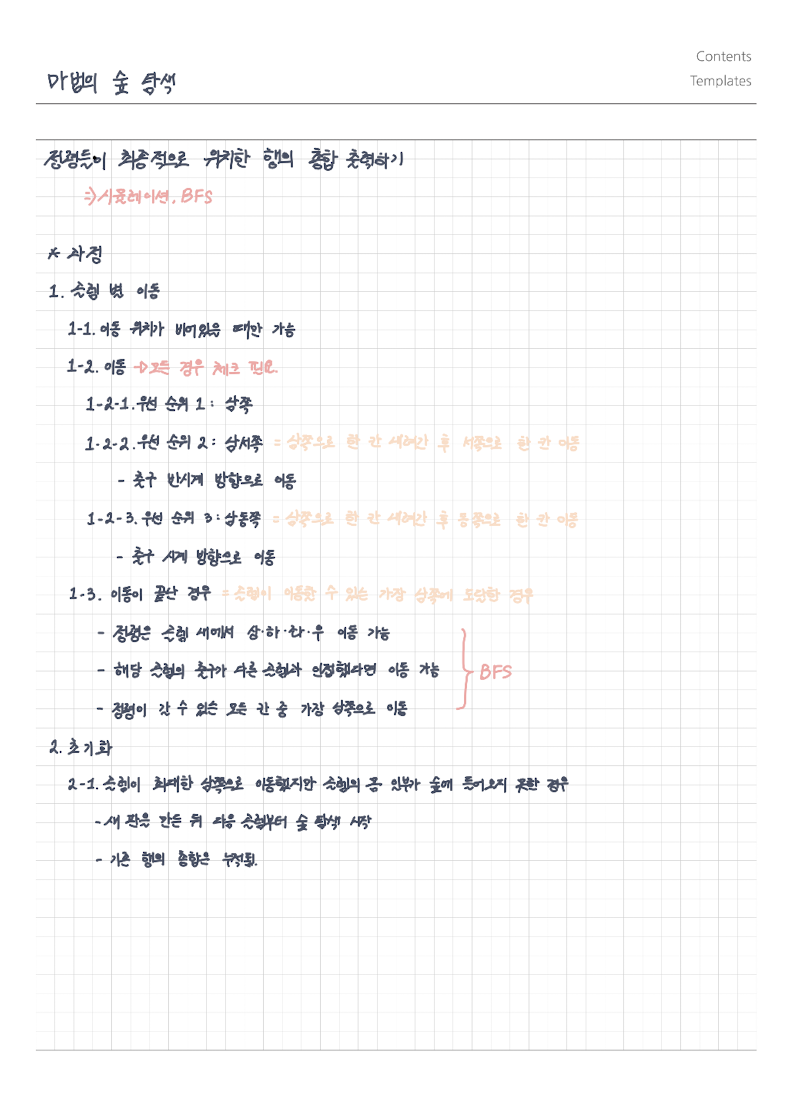 Contents
마법의 숲 탐색
Templates
정령들이 최종적으로 위치한 행의 총합 출력하기
=> 시뮬레이션, BFS
* 과정
1. 골렘 별 이동
1-1. 이동 위치가 비어있을 때만 가능
1-2. 이동 → 모든 경우 체크 필요.
1-2-1. 우선 순위 1 : 남쪽
1-2-2. 우선 순위 2 : 남서쪽 = 남쪽으로 한 칸 내려간 후 서쪽으로 한 칸 이동
- 출구 반시계 방향으로 이동
1-2-3. 우선 순위 3 : 남동쪽 = 남쪽으로 한 칸 내려간 후 동쪽으로 한 칸 이동
- 출구 시계 방향으로 이동
1-3. 이동이 끝난 경우 = 골렘이 이동할 수 있는 가장 남쪽에 도달한 경우
- 정령은 골렘 내에서 상·하·좌·우 이동 가능
- 해당 골렘의 출구가 다른 골렘과 인접했다면 이동 가능
BFS
- 정령이 갈 수 있는 모든 칸 중 가장 남쪽으로 이동
2. 초기화
2-1. 골렘이 최대한 남쪽으로 이동했지만 골렘의 몸 일부가 숲에 들어오지 못한 경우
- 새 판을 만든 뒤 다음 골렘부터 숲 탐색 시작
- 기존 행의 총합은 누적됨.